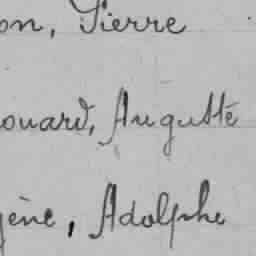 on, Pierre
ouard, Auguste
gène, Adolphe